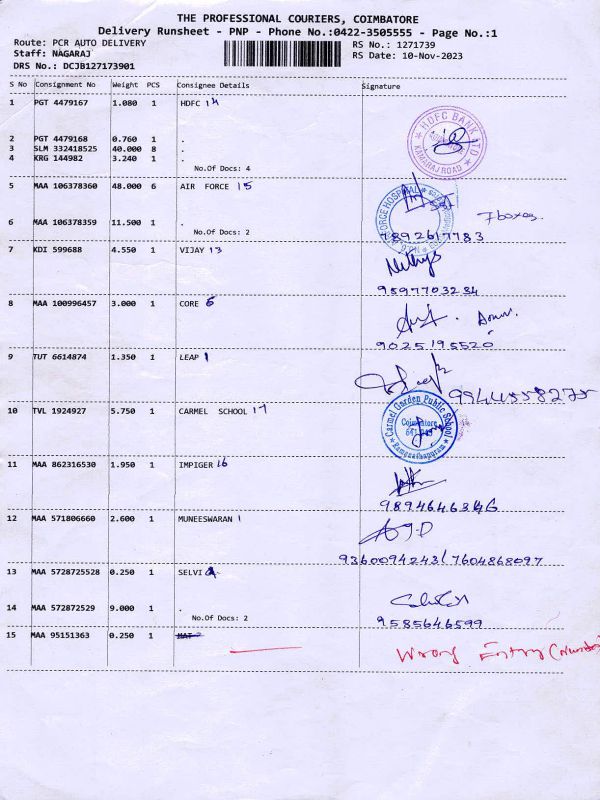 THE PROFESSIONAL COURIERS, COIMBATORE
Delivery Runsheet - PNP - Phone No.:0422-3505555 - Page No.:1
Route: PCR AUTO DELIVERY RS No.: 1271739
Staff: NAGARAJ RS Date: 10-Nov-2023
DRS No.: DCJB127173901
S No Consignment No Weight PCS Consignee Details Signature
1 PGT 4479167 1.080 1 HDFC 14
HDFC BANK LTD
KAMARAJ ROAD
2 PGT 4479168 0.760 1 .
3 SLM 332418525 40.000 8 .
4 KRG 144982 3.240 1 .
No.Of Docs: 4
5 MAA 106378360 48.000 6 AIR FORCE 15
FORCE HOSPITAL
7boxes.
6 MAA 106378359 11.500 1 .
No.Of Docs: 2
7892617783
7 KDI 599688 4.550 1 VIJAY 13
9597703234
8 MAA 100996457 3.000 1 CORE 6
9025195520
9 TUT 6614874 1.350 1 LEAP 1
9944558275
10 TVL 1924927 5.750 1 CARMEL SCHOOL 17
Carmel Garden Public School
Coimbatore
Ramanathapuram
11 MAA 862316530 1.950 1 IMPIGER 16
9894646346
12 MAA 571806660 2.600 1 MUNEESWARAN 1
9360094243/7604868097
13 MAA 5728725528 0.250 1 SELVI
14 MAA 572872529 9.000 1 .
No.Of Docs: 2
9585646599
15 MAA 95151363 0.250 1 MAT
Wrong Entry